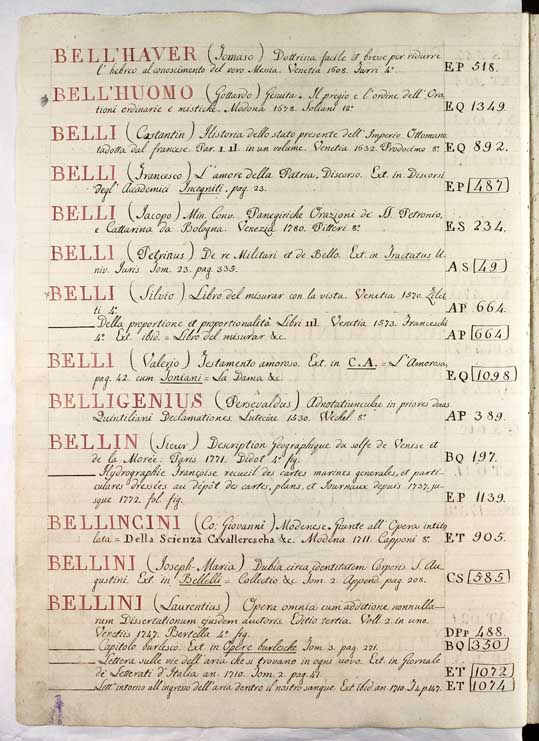 BELL'HAVER (Tomaso) Dottrina facile et breve per ridurre
l'hebreo al conoscimento del vero Messia. Venetia 1608. Turri 4.° EP 518.
BELL'HUOMO (Gottardo) Gesuita. Il pregio e l'ordine dell'Ora
tioni ordinarie e mistiche. Modona 1678. Soliani 12.° EQ 1349.
BELLI (Costantin) Historia dello stato presente dell'Imperio Ottomano
tadotta dal francese. Par. I. II. in un volume. Venetia 1632. Prodocimo 8.° EQ 892.
BELLI (Francesco) L'amore della Patria, Discorso. Ext. in Discorsi
degl'Academici Incogniti. pag. 23. EP 487
BELLI (Jacopo) Min. Conv. Panegiriche Orazioni de SS. Petronio,
e Cattarina da Bologna. Venezia 1780. Pitteri 8.° ES 234.
BELLI (Petrinus) De re Militari et de Bello. Ext. in Tractatus U-
niv. Juris Tom. 23. pag. 335. AS 49
BELLI (Silvio) Libro del misurar con la vista. Venetia 1570. Zilet
ti 4.° AP 664.
Della proportione et proportionalità Libri III. Venetia 1573. Franceschi
4.° Ext. ibid. = Libro del misurar &c. AP 664
BELLI (Valerio) Testamento amoroso. Ext. in C.A. = L'Amorosa,
pag. 42. cum Tontani = La Dama &c. EQ 1098
BELLIGENIUS (Persevaldus) Adnotatiunculae in priores duas
Quintiliani Declamationes. Luteciae 1530. Wechel 8.° AP 389.
BELLIN (Sieur) Description Geographique du golfe de Venise et
de la Morée. Paris 1771. Didot 4.° fig. BQ 197.
Hydrographie Françoise recueil des cartes marines generales, et parti-
culares dressées au dépôt des cartes, plans, et Journaux depuis 1737. ju-
sque 1772. fol. fig. EP 1139.
BELLINCINI (Co: Giovanni) Modenese. Giunte all'Opera intito
lata = Della Scienza Cavallerescha &c. Modena 1711. Capponi 8.° ET 905.
BELLINI (Joseph-Maria) Dubia circa identitatem Corporis S. Au-
gustini. Ext. in Bellelli = Collectio &c. Tom. 2. Append. pag. 208. CS 585
BELLINI (Laurentius) Opera omnia cum additione nonnulla-
rum Dissertationum ejusdem auctoris. Editio tertia. Voll. 2. in uno.
Venetiis 1747. Bertella 4.° fig. DPp 488.
Capitolo burlesco. Ext. in Opere burlesche Tom. 3. pag. 271. BQ 350
Lettera sulle vie dell'aria che si trovano in ogni uovo. Ext. in Giornale
de Letterati d'Italia an. 1710. Tom. 2. pag. 41. ET 1072
Lett.a intorno all'ingresso dell'aria dentro il nostro sangue. Ext. ibid. an. 1710. T. 4. p. 147. ET 1074